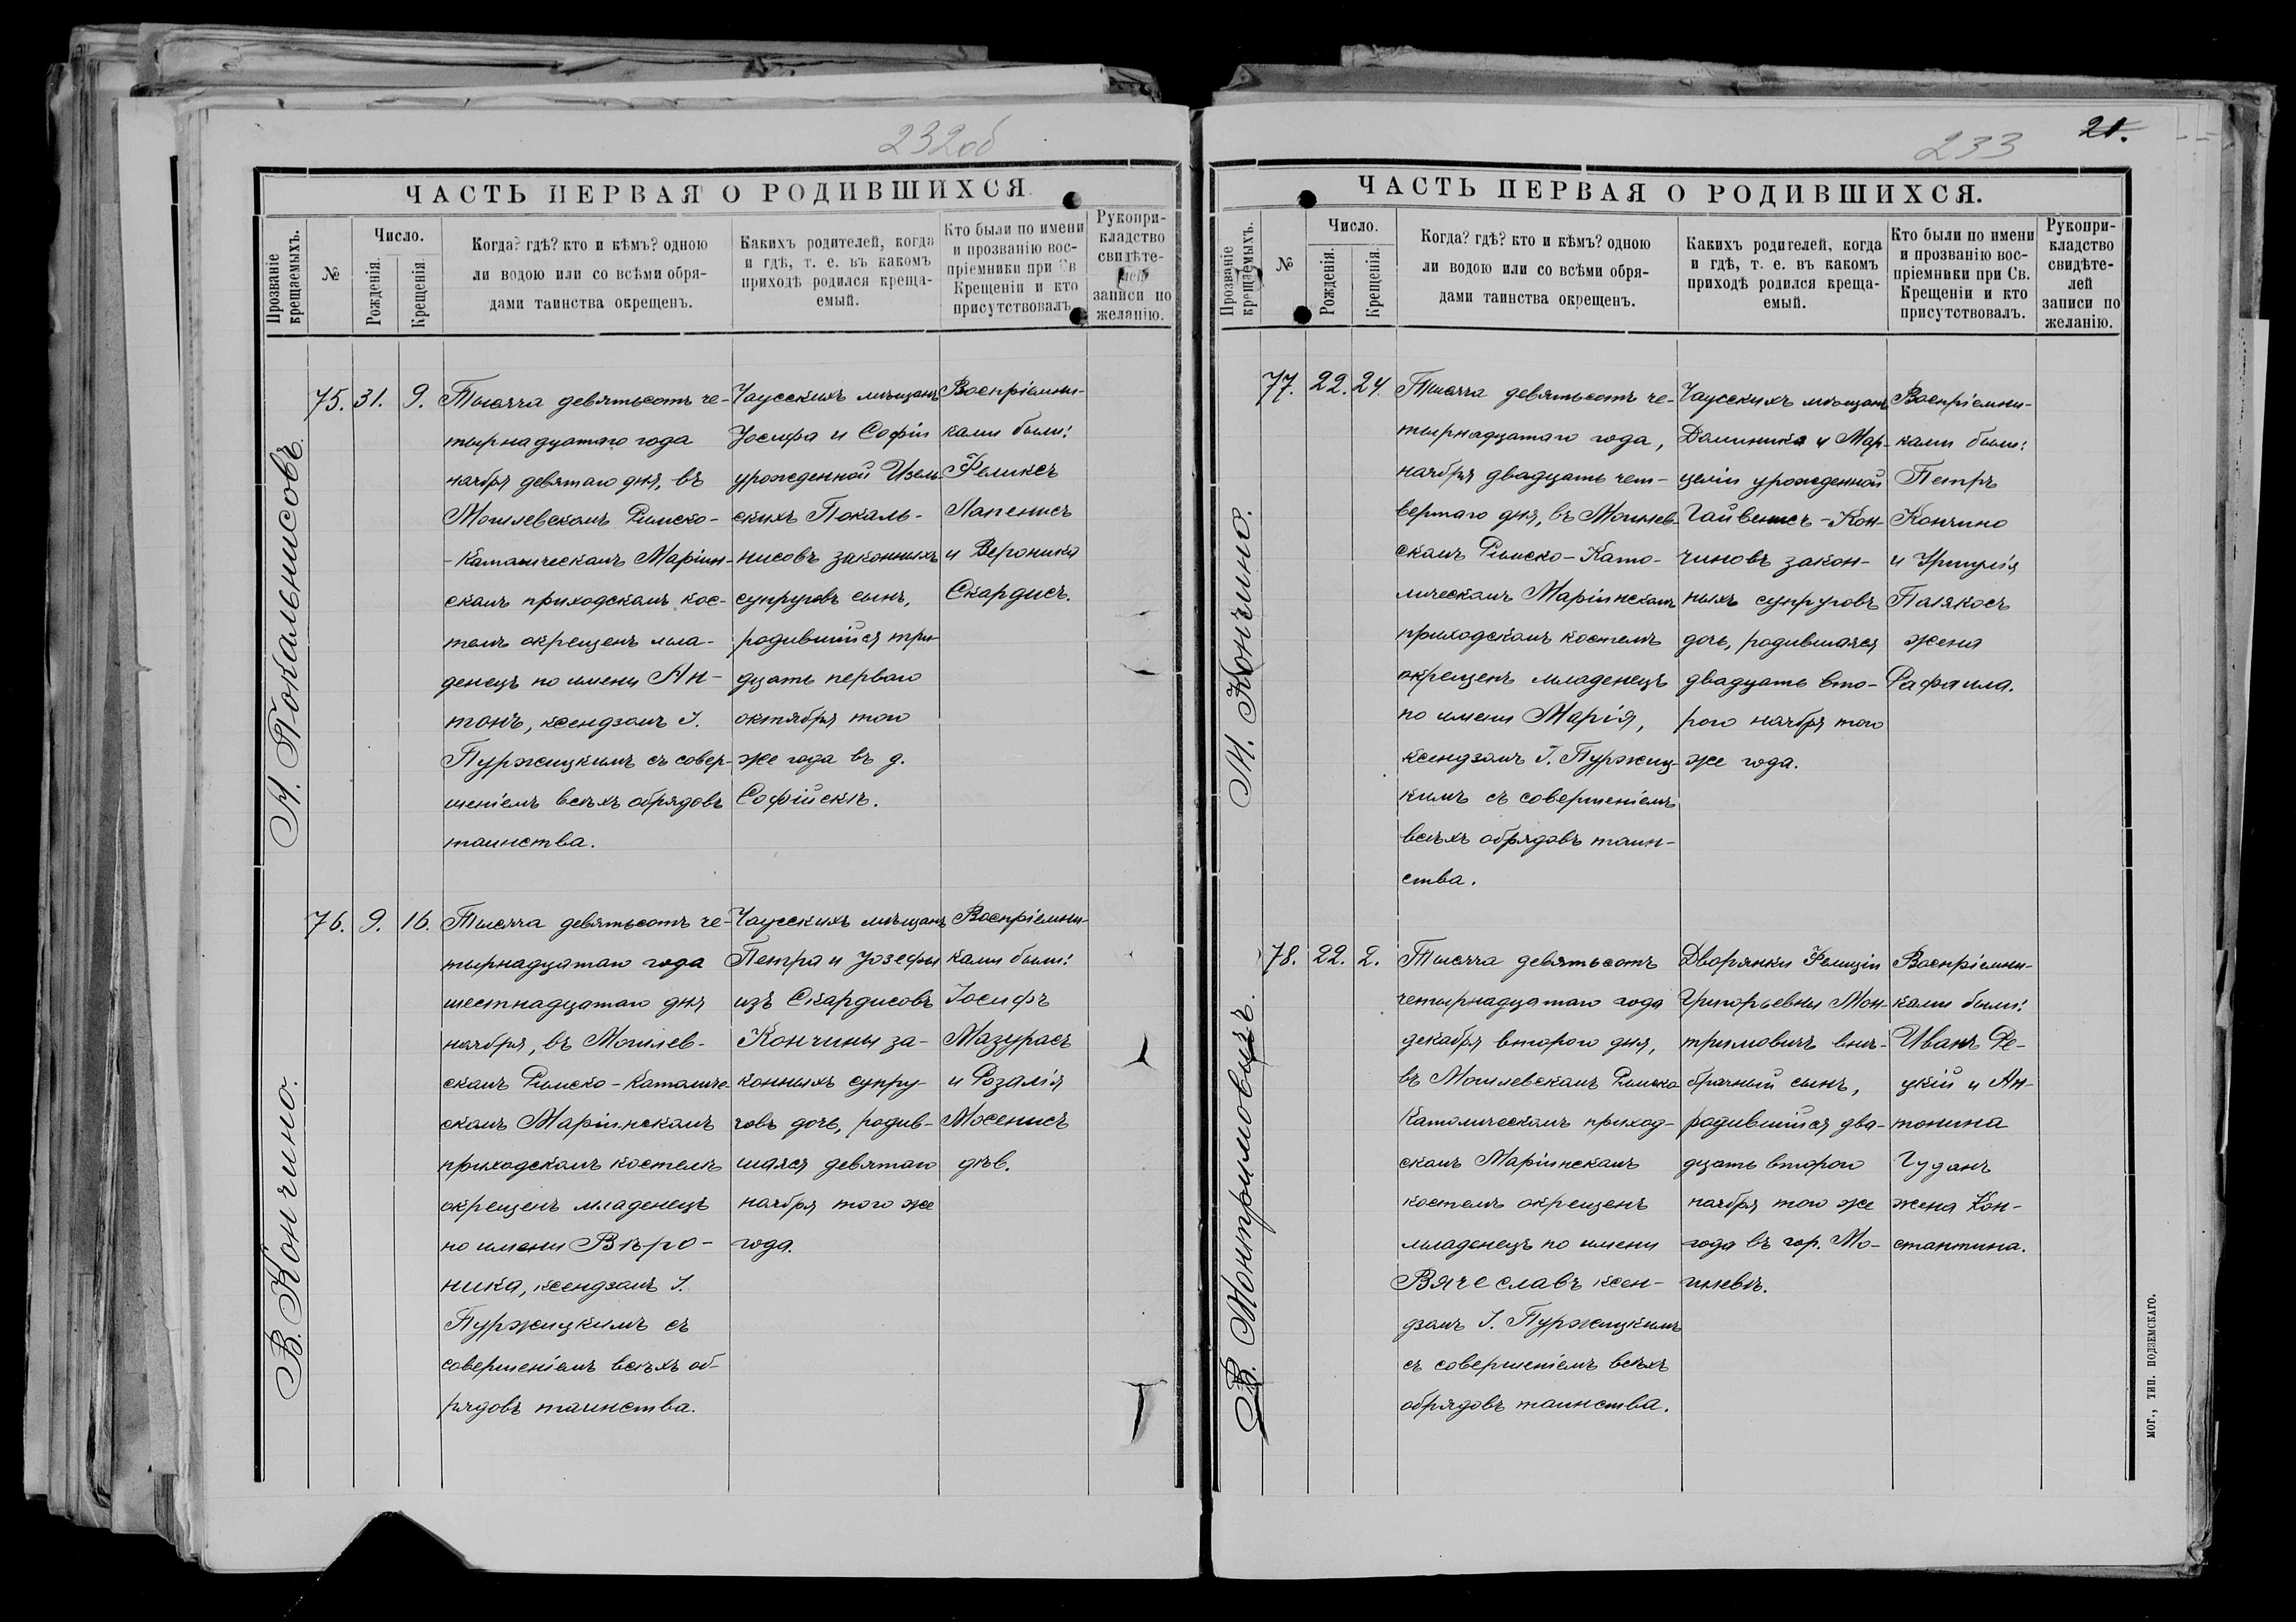 232об
ЧАСТЬ ПЕРВАЯ О РОДИВШИХСЯ
Прозваніе крещаемыхъ.
№
Число.
Рожденія.
Крещенія.
Когда? гдѣ? кто и кѣмъ? одною
ли водою или со всѣми обря-
дами таинства окрещенъ.
Какихъ родителей, когда
и гдѣ, т. е. въ какомъ
приходѣ родился креща-
емый.
Кто были по имени
и прозванію вос-
пріемники при Св
Крещеніи и кто
присутствовалъ
Рукопри-
кладство
свидѣте-
лей
записи по
желанію.
А. Покальнисовъ.
75. 31. 9.
Тысяча девятьсотъ че-
тырнадцатаго года
ноября девятаго дня, въ
Могилевскомъ Римско-
-Католическомъ Маріин-
скомъ приходскомъ кос-
телѣ окрещенъ мла-
денецъ по имени Ан-
тонъ, ксендзомъ І.
Пуржицкимъ съ совер-
шеніемъ всѣхъ обрядовъ
таинства.
Чаусскихъ мѣщанъ
Іосифа и Софіи
урожденной Изель-
скихъ Покаль-
нисовъ законныхъ
супруговъ сынъ,
родившійся три-
дцать перваго
октября того
же года въ д.
Софійскѣ.
Воспріемни-
ками были:
Феликсъ
Лапенисъ
и Вероника
Скардисъ.
В. Кончино.
76. 9. 16.
Тысяча девятьсотъ че-
тырнадцатаго года
шестнадцатаго дня
ноября, въ Могилев-
скомъ Римско-Католиче-
скомъ Маріинскомъ
приходскомъ костелѣ
окрещенъ младенецъ
по имени Вѣро-
ника, ксендзомъ І.
Пуржицкимъ съ
совершеніемъ всѣхъ об-
рядовъ таинства.
Чаусскихъ мѣщанъ
Петра и Іозефы
изъ Скардисовъ
Кончины за-
конныхъ супру-
говъ дочь, родив-
шаяся девятаго
ноября того же
года.
Воспріемни-
ками были:
Іосифъ
Мазурасъ
и Розалія
Моженисъ
дѣв.
21.
233
ЧАСТЬ ПЕРВАЯ О РОДИВШИХСЯ.
Прозваніе крещаемыхъ.
№
Число.
Рожденія.
Крещенія.
Когда? гдѣ? кто и кѣмъ? одною
ли водою или со всѣми обря-
дами таинства окрещенъ.
Какихъ родителей, когда
и гдѣ, т. е. въ какомъ
приходѣ родился креща-
емый.
Кто были по имени
и прозванію вос-
пріемники при Св.
Крещеніи и кто
присутствовалъ.
Рукопри-
кладство
свидѣте-
лей
записи по
желанію.
М. Кончино.
77. 22. 24.
Тысяча девятьсотъ че-
тырнадцатаго года,
ноября двадцать чет-
вертаго дня, въ Могилев-
скомъ Римско-Като-
лическомъ Маріинскомъ
приходскомъ костелѣ
окрещенъ младенецъ
по имени Марія,
ксендзомъ І. Пуржиц-
кимъ съ совершеніемъ
всѣхъ обрядовъ таин-
ства.
Чаусскихъ мѣщанъ
Доминика и Мар-
целіи урожденной
Гайвенисъ-Кон-
чиновъ закон-
ныхъ супруговъ
дочь, родившаяся
двадцать вто-
рого ноября того
же года.
Воспріемни-
ками были:
Петръ
Кончино
и Уршуля
Полякосъ
жена
Рафаила.
В. Монтримовичъ.
78. 22. 2.
Тысяча девятьсотъ
четырнадцатаго года
декабря второго дня,
въ Могилевскомъ Римско
Католическомъ приход-
скомъ Маріинскомъ
костелѣ окрещенъ
младенецъ по имени
Вячеславъ ксен-
дзомъ І. Пуржицкимъ
съ совершеніемъ всѣхъ
обрядовъ таинства.
Дворянки Фелиціи
Григорьевны Мон-
тримовичъ внѣ-
брачный сынъ,
родившійся два-
дцать второго
ноября того же
года въ гор. Мо-
гилевѣ.
Воспріемни-
ками были:
Иванъ Ре-
уцкій и Ан-
тонина
Гуданъ
жена Кон-
стантина.
МОГ., ТИП. ПОДЗЕМСКАГО.